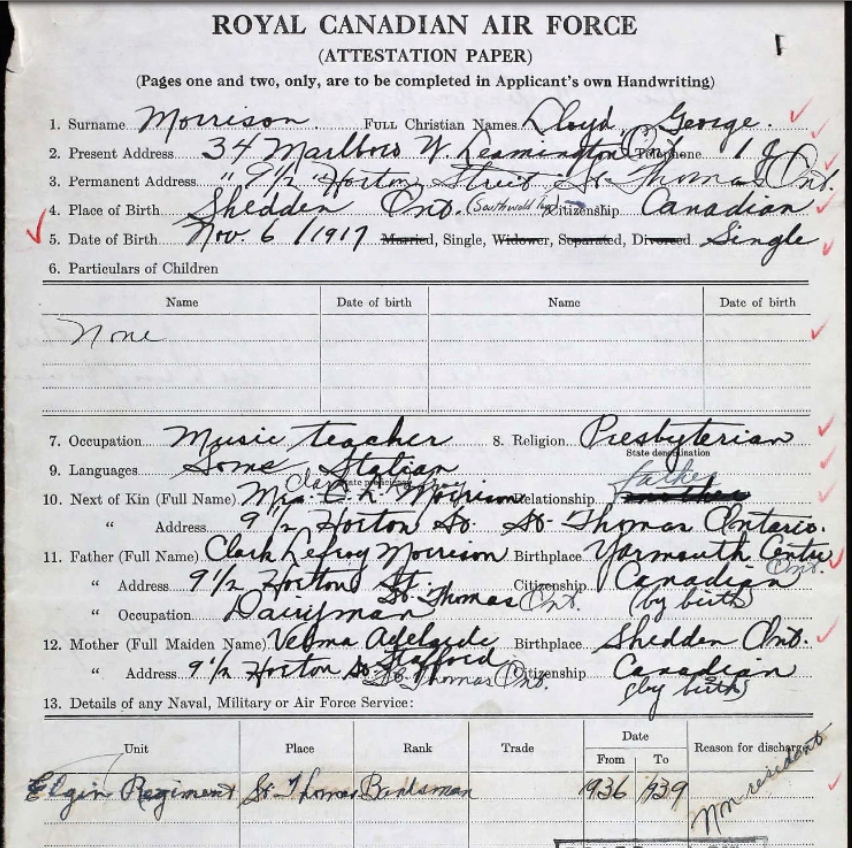 ROYAL CANADIAN AIR FORCE
(ATTESTATION PAPER)
(Pages one and two, only, are to be completed in Applicant's own Handwriting)
1. Surname Morrison FULL Christian Names Lloyd, George.
2. Present Address 34 Marlboro W. Leamington Ont. Telephone 1 J
3. Permanent Address " 9 1/2 Horton Street St. Thomas Ont.
4. Place of Birth Shedden Ont. (Southwold) Citizenship Canadian
5. Date of Birth Nov. 6/1917 Married, Single, Widower, Separated, Divorced Single
6. Particulars of Children
Name Date of birth Name Date of birth
None
7. Occupation Music teacher 8. Religion Presbyterian
State denomination
9. Languages Some Italian
State proficiency father
10. Next of Kin (Full Name) Mrs. C. L. Morrison Relationship mother
" Address 9 1/2 Horton St. St. Thomas Ontario.
11. Father (Full Name) Clark Lefroy Morrison Birthplace Yarmouth Centre Ont.
" Address 9 1/2 Horton St. St. Thomas Ont. Citizenship Canadian
" Occupation Dairyman (by birth)
12. Mother (Full Maiden Name) Velma Adelaide Stafford Birthplace Shedden Ont.
" Address 9 1/2 Horton St. St. Thomas Ont. Citizenship Canadian
(by birth)
13. Details of any Naval, Military or Air Force Service:
Unit Place Rank Trade Date From To Reason for discharge
Elgin Regiment St. Thomas Bandsman 1936 1939 Non resident